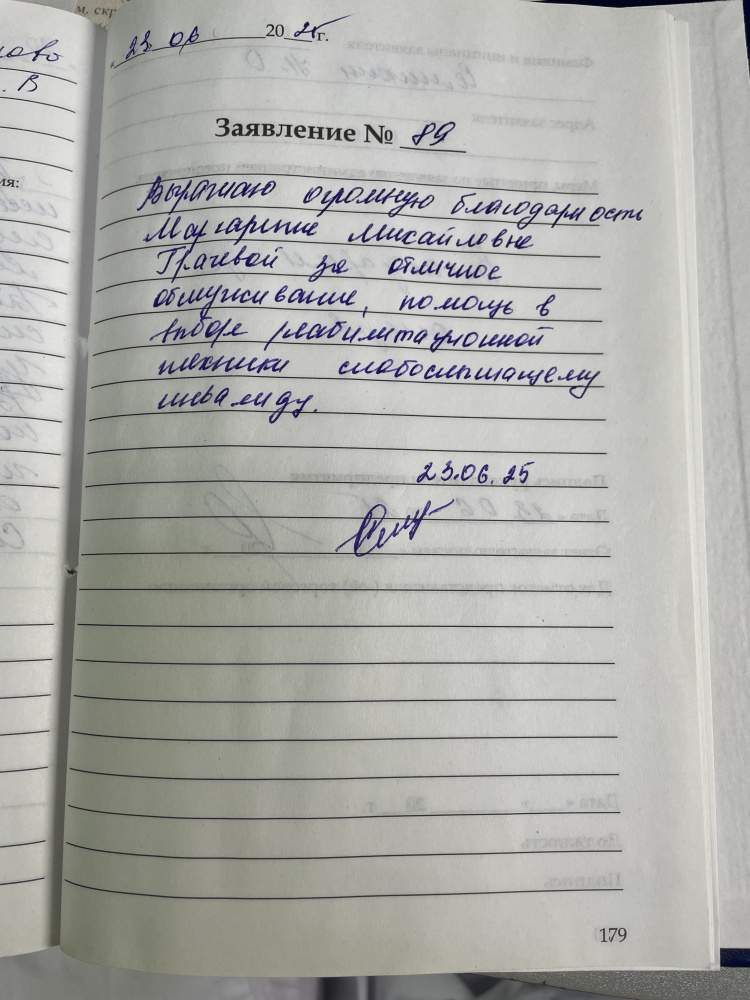 м. скр
ново
. В
ия:
23. 06 2025г.
Заявление № 89
Выражаю огромную благодарность
Маргарите Михайловне
Грачевой за отличное
обслуживание, помощь в
выборе реабилитационной
техники слабослышащему
инвалиду.
23.06.25
179